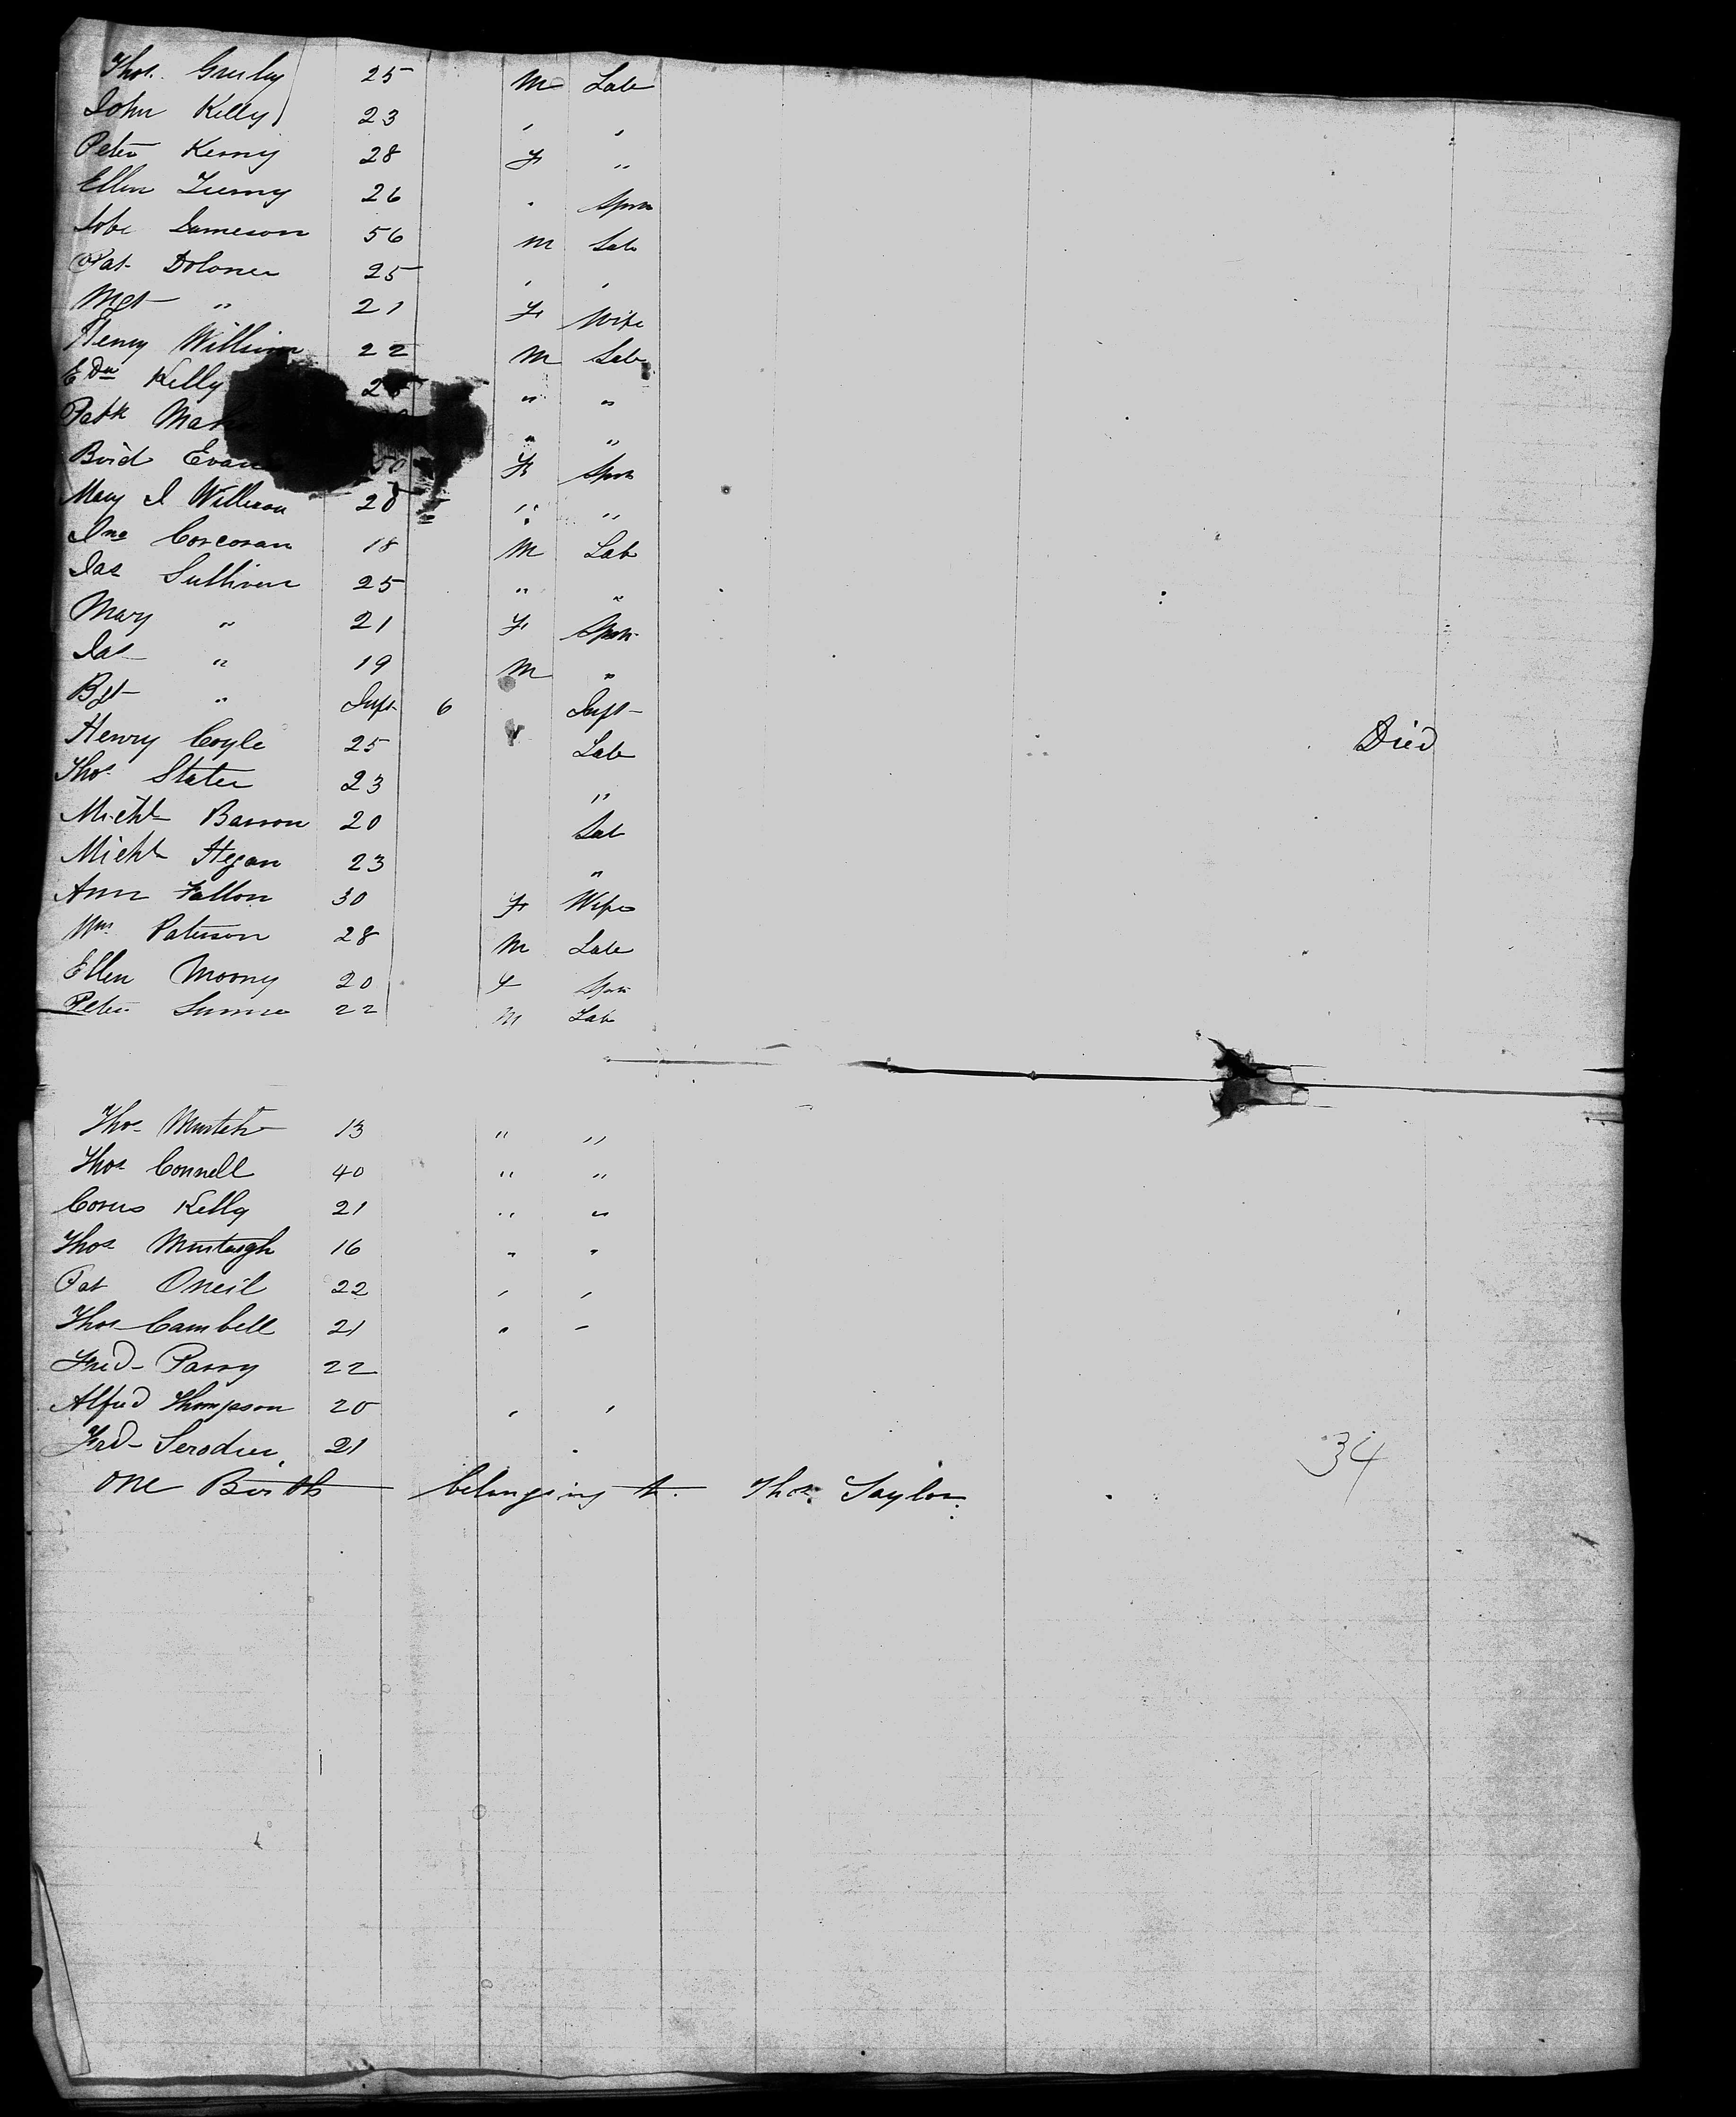 Thos. Gurley 25 M Lab
John Kelly 23 " "
Peter Kenny 28 F "
Ellen 26 " Spin
Jameson 56 M Lab
Pat Doloner 25 " "
Mgt " 21 F Wife
Henry William 22 M Lab
Edw Kelly 2 " "
Patk " "
Brid Evan 50 F Spin
Mary J Willison 20 " "
Jno Corcoran 18 M Lab
Jas Sullivan 25 " "
Mary " 21 F Spin
Jas " 19 M "
Bgt " Inft 6 Inft
Henry Coyle 25 Lab Died
Thos Slater 23 "
Michl Barron 20 Lab
Michl Hegan 23 "
Ann Fallon 30 F Wife
Wm Paterson 28 M Lab
Ellen Moony 20 F Spin
Peter 22 M Lab
Thos 13 " "
Thos Connell 40 " "
Kelly 21 " "
Thos Murtaigh 16 " "
Pat Oneil 22 " "
Thos Cambell 21 " "
Fred Parry 22
Alfred Thompson 20 " "
Frd 21 "
34
one Birth belonging to Thos. Taylor.